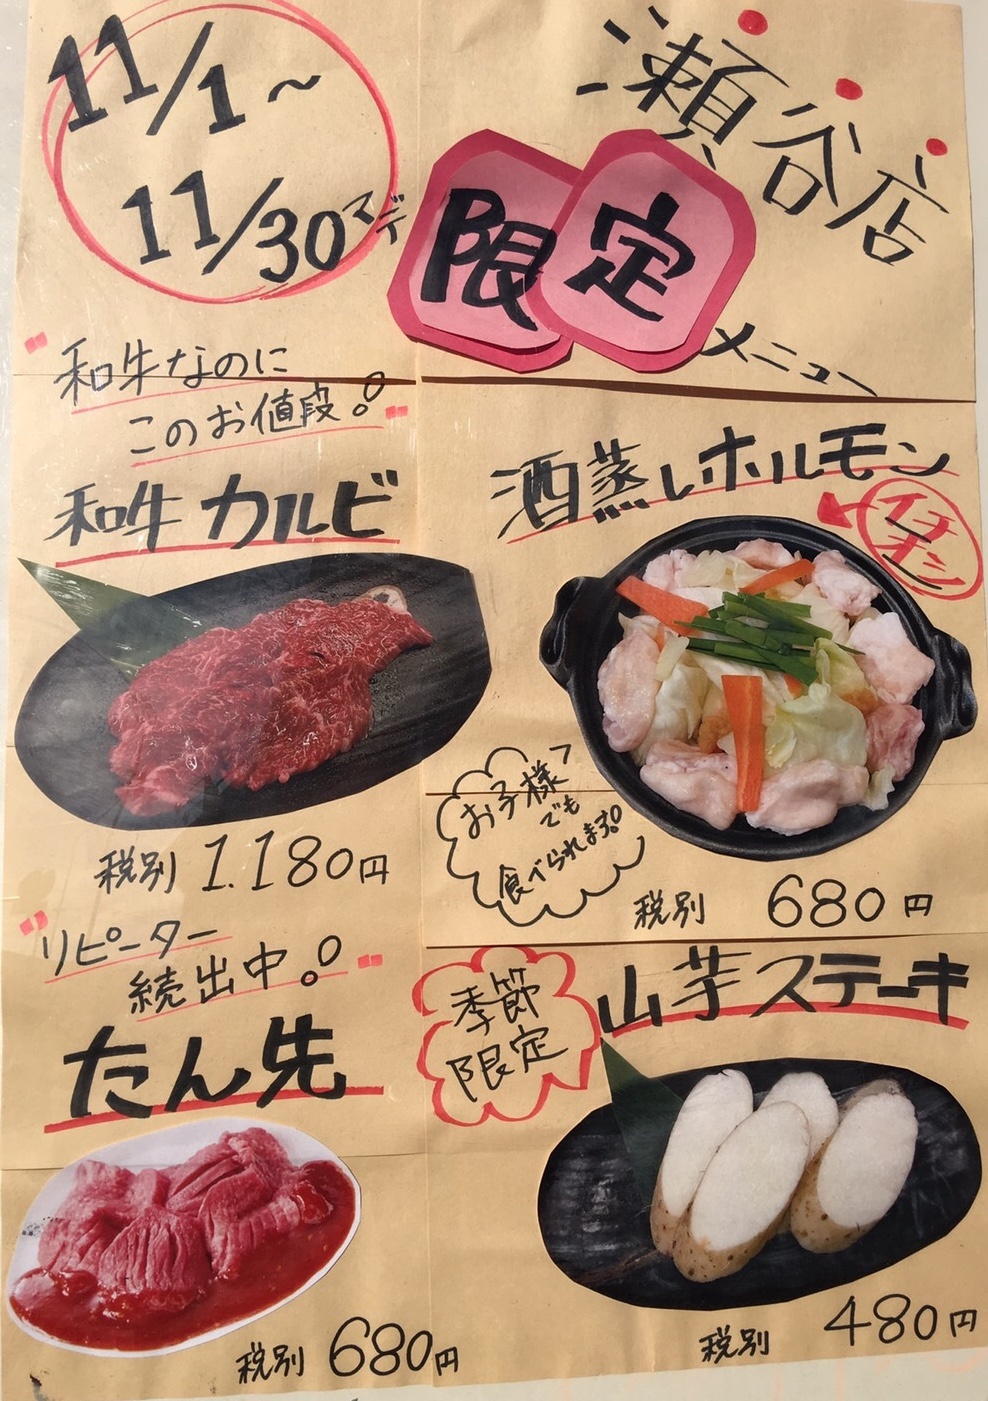 11/1～
11/30マデ
瀬谷店
限定
メニュー
"和牛なのに
このお値段!"
和牛カルビ
税別 1.180円
酒蒸しホルモン
イチオシ
お子様
でも
食べられます!
税別 680円
"リピーター
続出中!"
たん先
税別 680円
季節
限定
山芋ステーキ
税別 480円